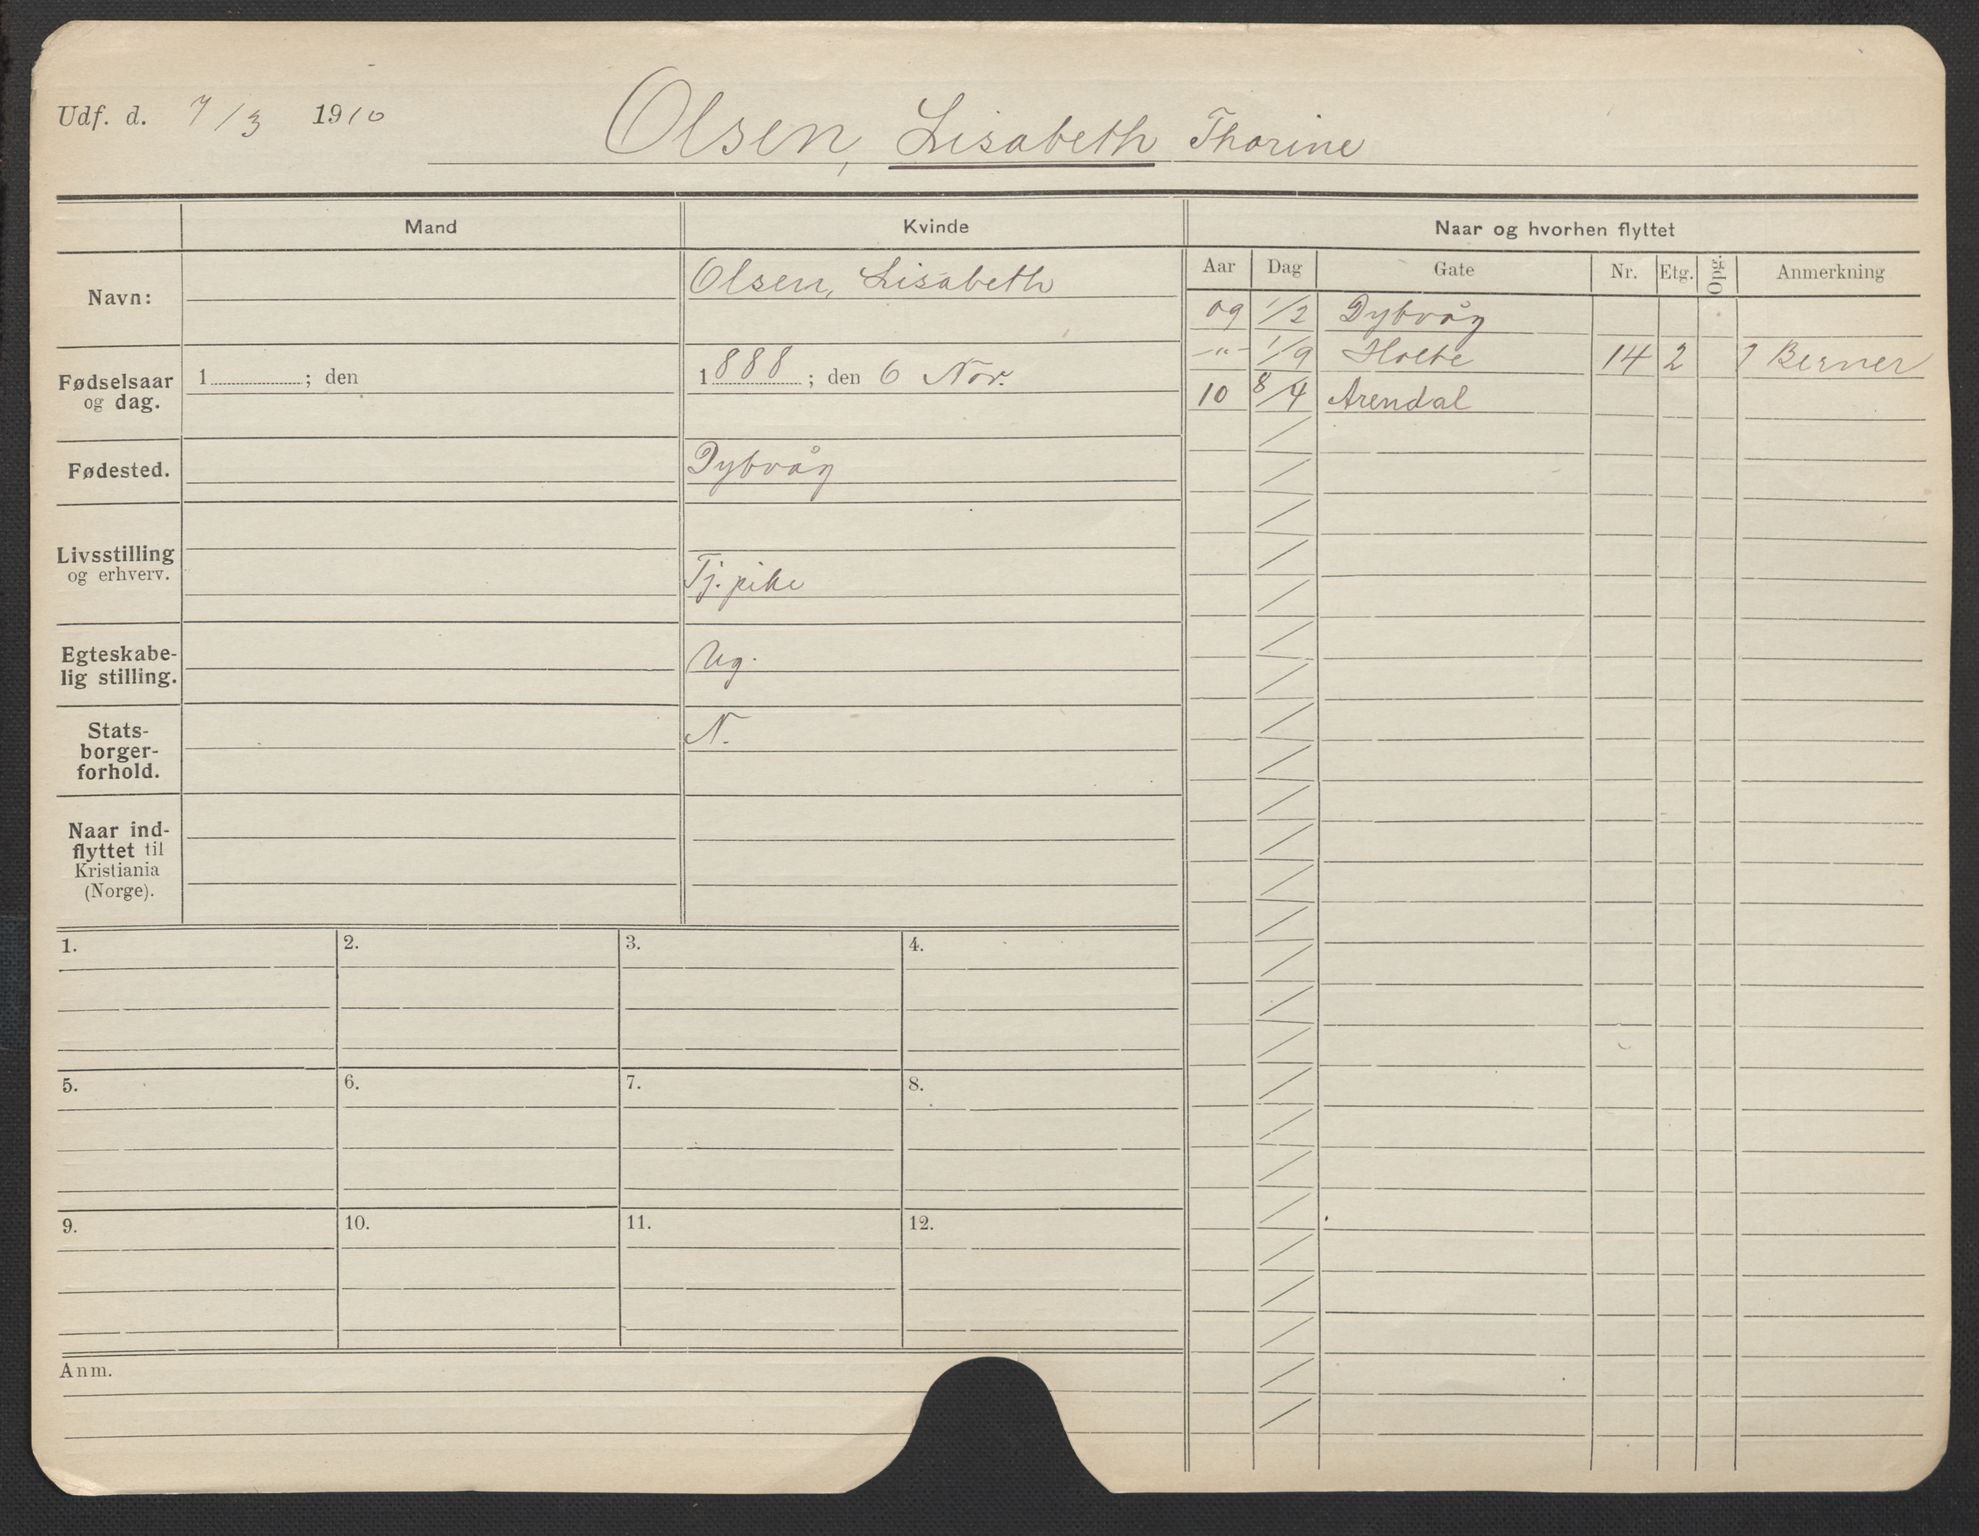 Udf. d. 7/3 1910
Olsen, Lisabeth Thorine
Mand
Kvinde
Naar og hvorhen flyttet
Navn:
Olsen, Lisabeth
Fødselsaar
og dag.
1 ; den
1888 ; den 6 Nov.
Fødested.
Dybvåg
Livsstilling
og erhverv.
Tj. pike
Egteskabe-
lig stilling.
Ug.
Stats-
borger-
forhold.
N.
Naar ind-
flyttet til
Kristiania
(Norge).
Aar Dag Gate Nr. Etg. Opg. Anmerkning
09 1/2 Dybvåg
-"- 1/9 Holte 14 2 Berner
10 8/4 Arendal
1. 2. 3. 4.
5. 6. 7. 8.
9. 10. 11. 12.
Anm.